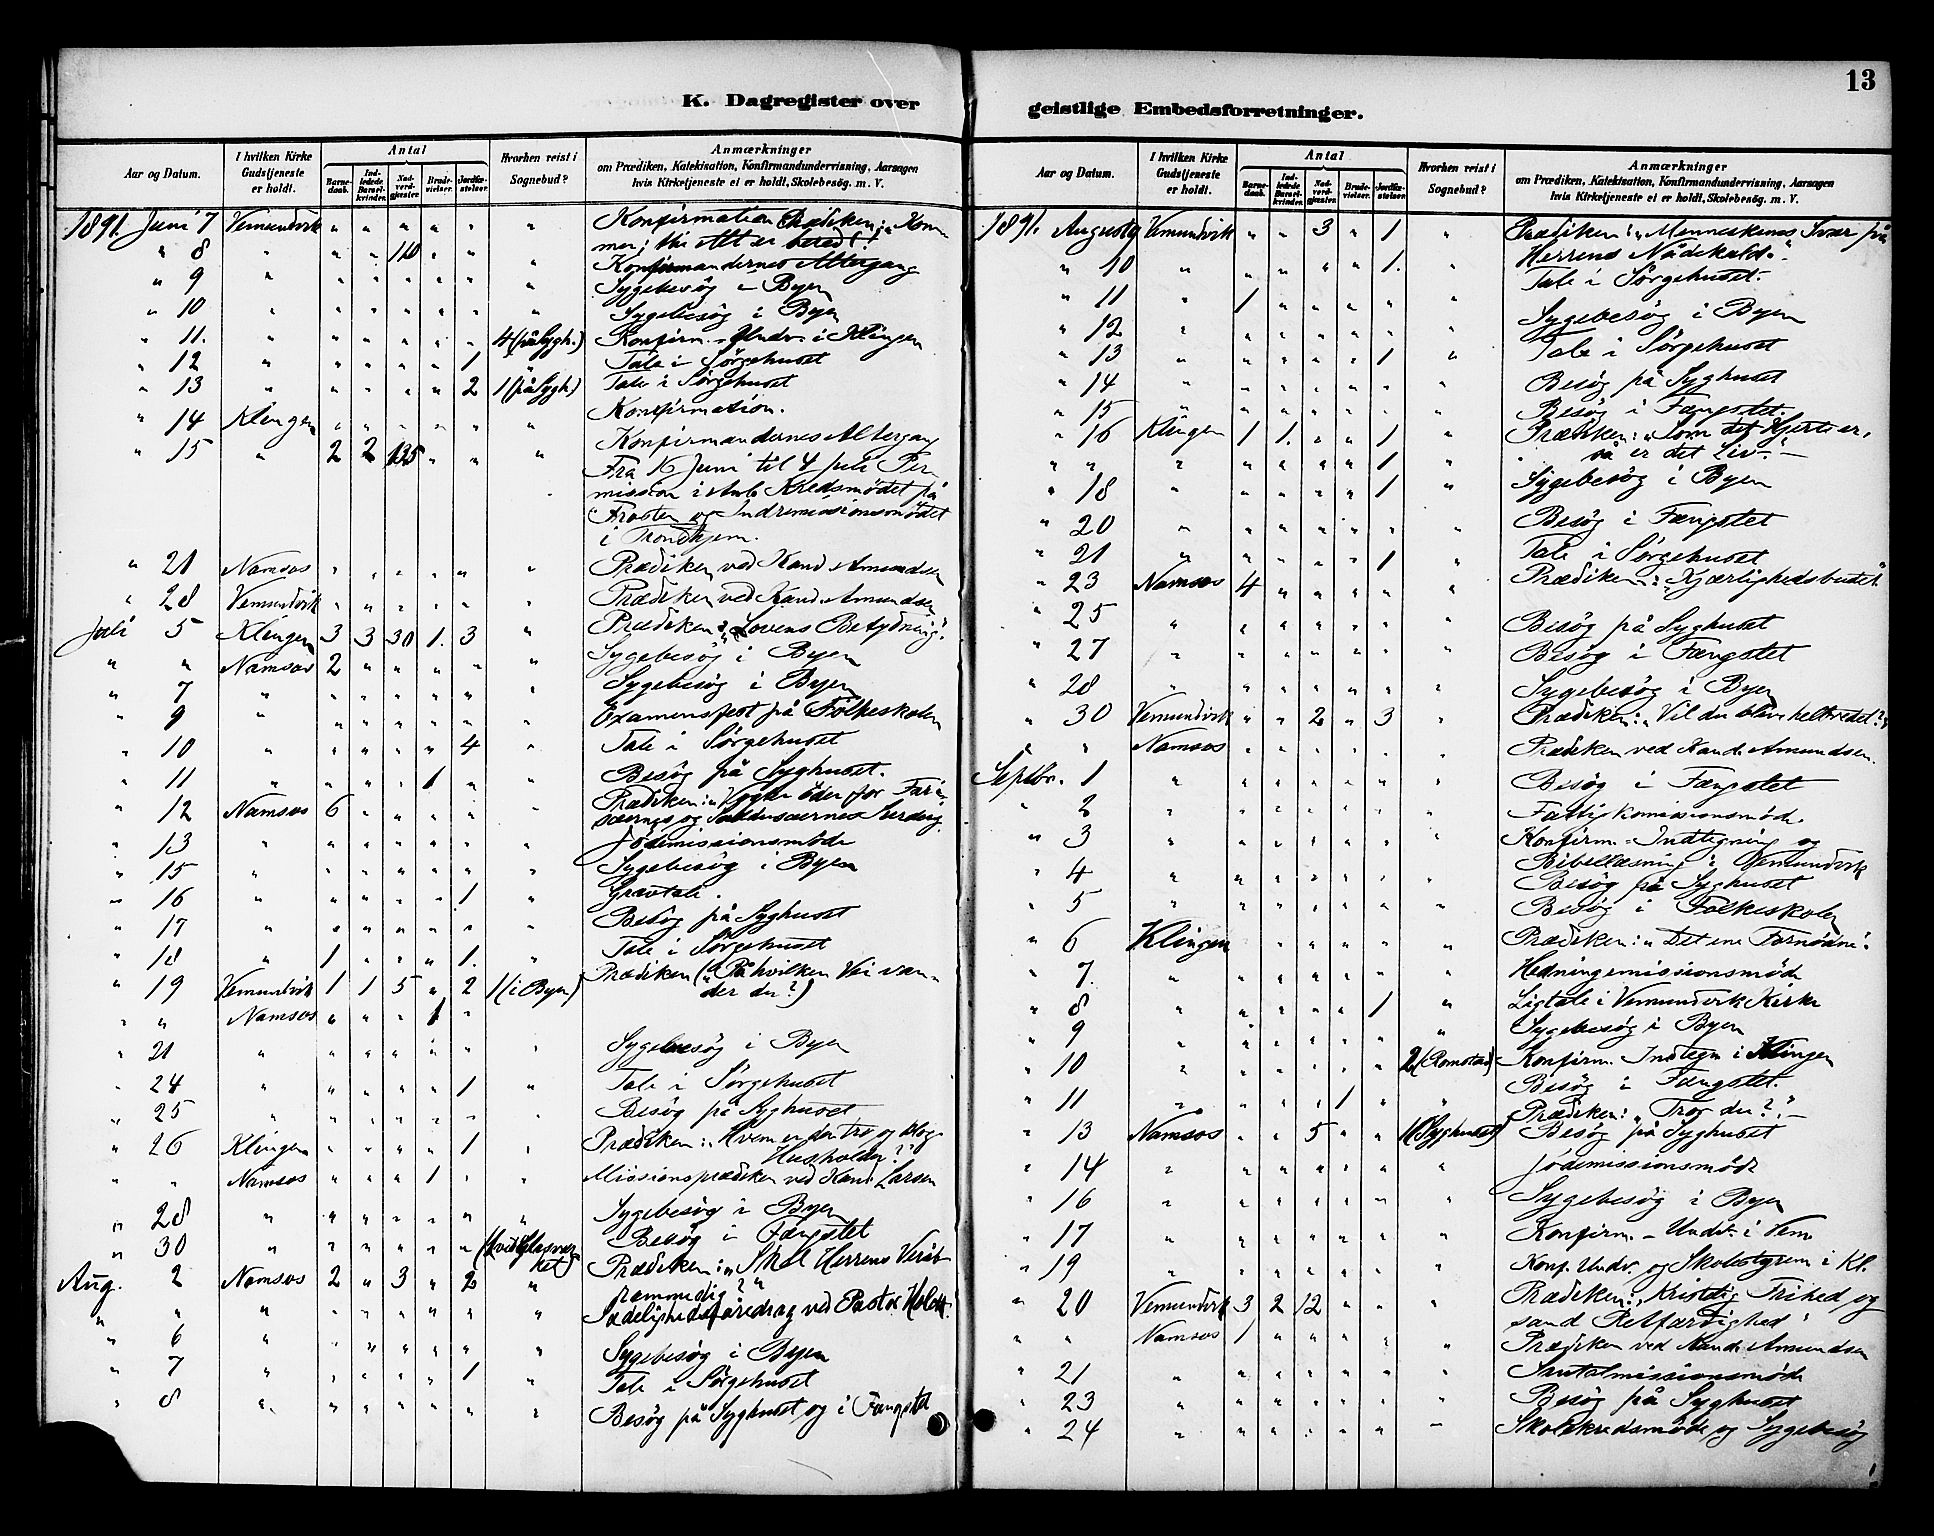 13
K. Dagregister over
geistlige Embedsforretninger.
Aar og Datum.
I hvilken Kirke Gudstjeneste er holdt.
Antal
Barnedaab.
Indledede Barselkvinder.
Nadverdgjester.
Brudevielser.
Jordfæstelser.
Hvorhen reist i Sognebud?
Anmærkninger
om Prædiken, Katekisation, Konfirmandundervisning, Aarsagen
hvis Kirketjeneste ei er holdt, Skolebesøg. m. V.
1891. Juni 7 Vemundvik " " " " " " Konfirmation Prædiken: "Kommer; thi Alt er beredt!
" 8 " " " 120 " " " Konfirmandernes Altergang
" 9 " " " " " " " Sygebesøg i Byen
" 10 " " " " " " " Sygebesøg i Byen
" 11. " " " " " " 4 (på Sygh.) Konfirm.-Undv. i Klingen
" 12 " " " " " 1 " Tale i Sørgehuset
" 13 " " " " " 2 1 (på Sygh.) Tale i Sørgehuset
" 14 Klingen " " " " " " Konfirmation.
" 15 " 2 2 135 " " " Konfirmandernes Altergang
Fra 16 Juni til 4 juli Permission i Anl. Kredsmødet på
Frosten og Indremissionsmødet
i Trondhjem.
" 21 Namsos " " " " " " Prædiken ved Kand. Amundsen
" 28 Vemundvik " " " " " " Prædiken ved Kand. Amundsen
Juli 5 Klingen 3 3 30 1. 3 " Prædiken: "Lovens Betydning".
" " Namsos 2 " " " " " Sygebesøg i Byen
" 7 " " " " " " " Sygebesøg i Byen
" 9 " " " " " " " Examensfest på Folkeskolen
" 10 " " " " " 4 " Tale i Sørgehuset
" 11 " " " " 1 " " Besøg på Syghuset.
" 12 Namsos 6 " " " " " Prædiken: "Vogter øder for Farisæernes og Saddusæernes Surdeig
" 13 " " " " " " " Jødemissionsmøde
" 15 " " " " " " " Sygebesøg i Byen
" 16 " " " " " 1 " Gravtale.
" 17 " " " " " " " Besøg på Syghuset
" 18 " 1 " " " 1. " Tale i Sørgehuset
" 19 Vemundvik 1 1 5 " 2 1 (i Byen) Prædiken ("På hvilken Vei vander du?)
" " Namsos " " " 1 "
" 21 " " " " " " " Sygebesøg i Byen
" 24 " " " " " 1 " Tale i Sørgehuset
" 25 " " " " " " " Besøg på Syghuset
" 26 Klingen " " " " 1 " Prædiken: "Hvem er den tro og klog Husholder?"
" " Namsos " " " 1 " " Missionsprædiken ved Kand. Larsen
" 28 " " " " " " " Sygebesøg i Byen
" 30 " " " " " " (1 ved Glasværket) Besøg i Fængslet
Aug. 2 Namsos 2 " 3 " 2 " Prædiken: "Skal Herrens Veie rammedig?"
" " " " " " " " " Sædelighedsforedrag ved Pastor Holdt.
" 6 " " " " " " " Sygebesøg i Byen
" 7 " " " " " 1 " Tale i Sørgehuset
" 8 " " " " " " " Besøg på Syghuset og i Fængslet
Aar og Datum.
I hvilken Kirke Gudstjeneste er holdt.
Antal
Barnedaab.
Indledede Barselkvinder.
Nadverdgjester.
Brudevielser.
Jordfæstelser.
Hvorhen reist i Sognebud?
Anmærkninger
om Prædiken, Katekisation, Konfirmandundervisning, Aarsagen
hvis Kirketjeneste ei er holdt, Skolebesøg. m. V.
1891. August 9 Vemundvik " " 3 " 1 " Prædiken: "Menneskenes Svar på Herrens Nådekald."
" 10 " " " " " 1. " Tale i Sørgehuset.
" 11 " 1 " " " " " Sygebesøg i Byen
" 12 " " " " " " " Tale i Sørgehuset
" 13 " " " " " 1 "
" 14 " " " " " " " Besøg på Syghuset
" 15 " " " " " " " Besøg i Fængslet.
" 16 Klingen 1 1. " " 1 " Prædiken: "Som det Hjerte er, så er det Liv".
" " " " " " " 1 "
" 18 " " " " " 1 " Sygebesøg i Byen
" 20 " " " " " " " Besøg i Fængslet
" 21 " " " " " 1 " Tale i Sørgehuset
" 23 Namsos 4 " " " " " Prædiken: "Kjærlighedsbudet"
" 25 " " " " " " " Besøg på Syghuset
" 27 " " " " " " " Besøg i Fængslet
" 28 " " " " " " " Sygebesøg i Byen
" 30 Vemundvik " " 2 " 3 " Prædiken: "Vil du blive helbredet?"
" " Namsos " " " " " " Prædiken ved Kand. Amundsen.
Septbr. 1 " " " " " " " Besøg i Fængslet
" 2 " " " " " " " Fattigkomissionsmøde
" 3 " " " " " " " Konfirm.-Indtegning og Bibellæsning i Vemundvik
" 4 " " " " " " " Besøg på Syghuset
" 5 " " " " " " " Besøg i Folkeskolen
" 6 Klingen " " " " " " Prædiken: "Det ene Fornødne".
" 7. " " " " " " " Hedningemissionsmøde
" 8 " " " " " 1 " Ligtale i Vemundvik Kirke
" 9 " " " " " " " Sygebesøg i Byen
" 10 " " " " " " 2 (Romstad) Konfirm. Indtegn i Klingen
" 11 " " " " 1 " " Besøg i Fængslet.
" 13 Namsos " " 5 " " 1 (Syghuset) Prædiken: "Tror du?"
Besøg på Syghuset
" 14 " " " " " " " Jødemissionsmøde
" 16 " " " " " " " Sygebesøg i Byen
" 17 " " " " " " " Konfirm.-Undv. i Vem
" 19 " " " " " " " Konf. Undv. og Skolestyrem i Kl.
" 20 Vemundvik 3 2 12 " " " Prædiken: "Kristelig Frihed og sand Retfærdighed"
" " Namsos 1 " " " " " Prædiken ved Kand. Amundsen
" 21 " " " " " " " Santalmissionsmøde
" 23 " " " " " " " Besøg på Syghuset
" 24 " " " " " " " Skolekredsmøde og Sygebesøg